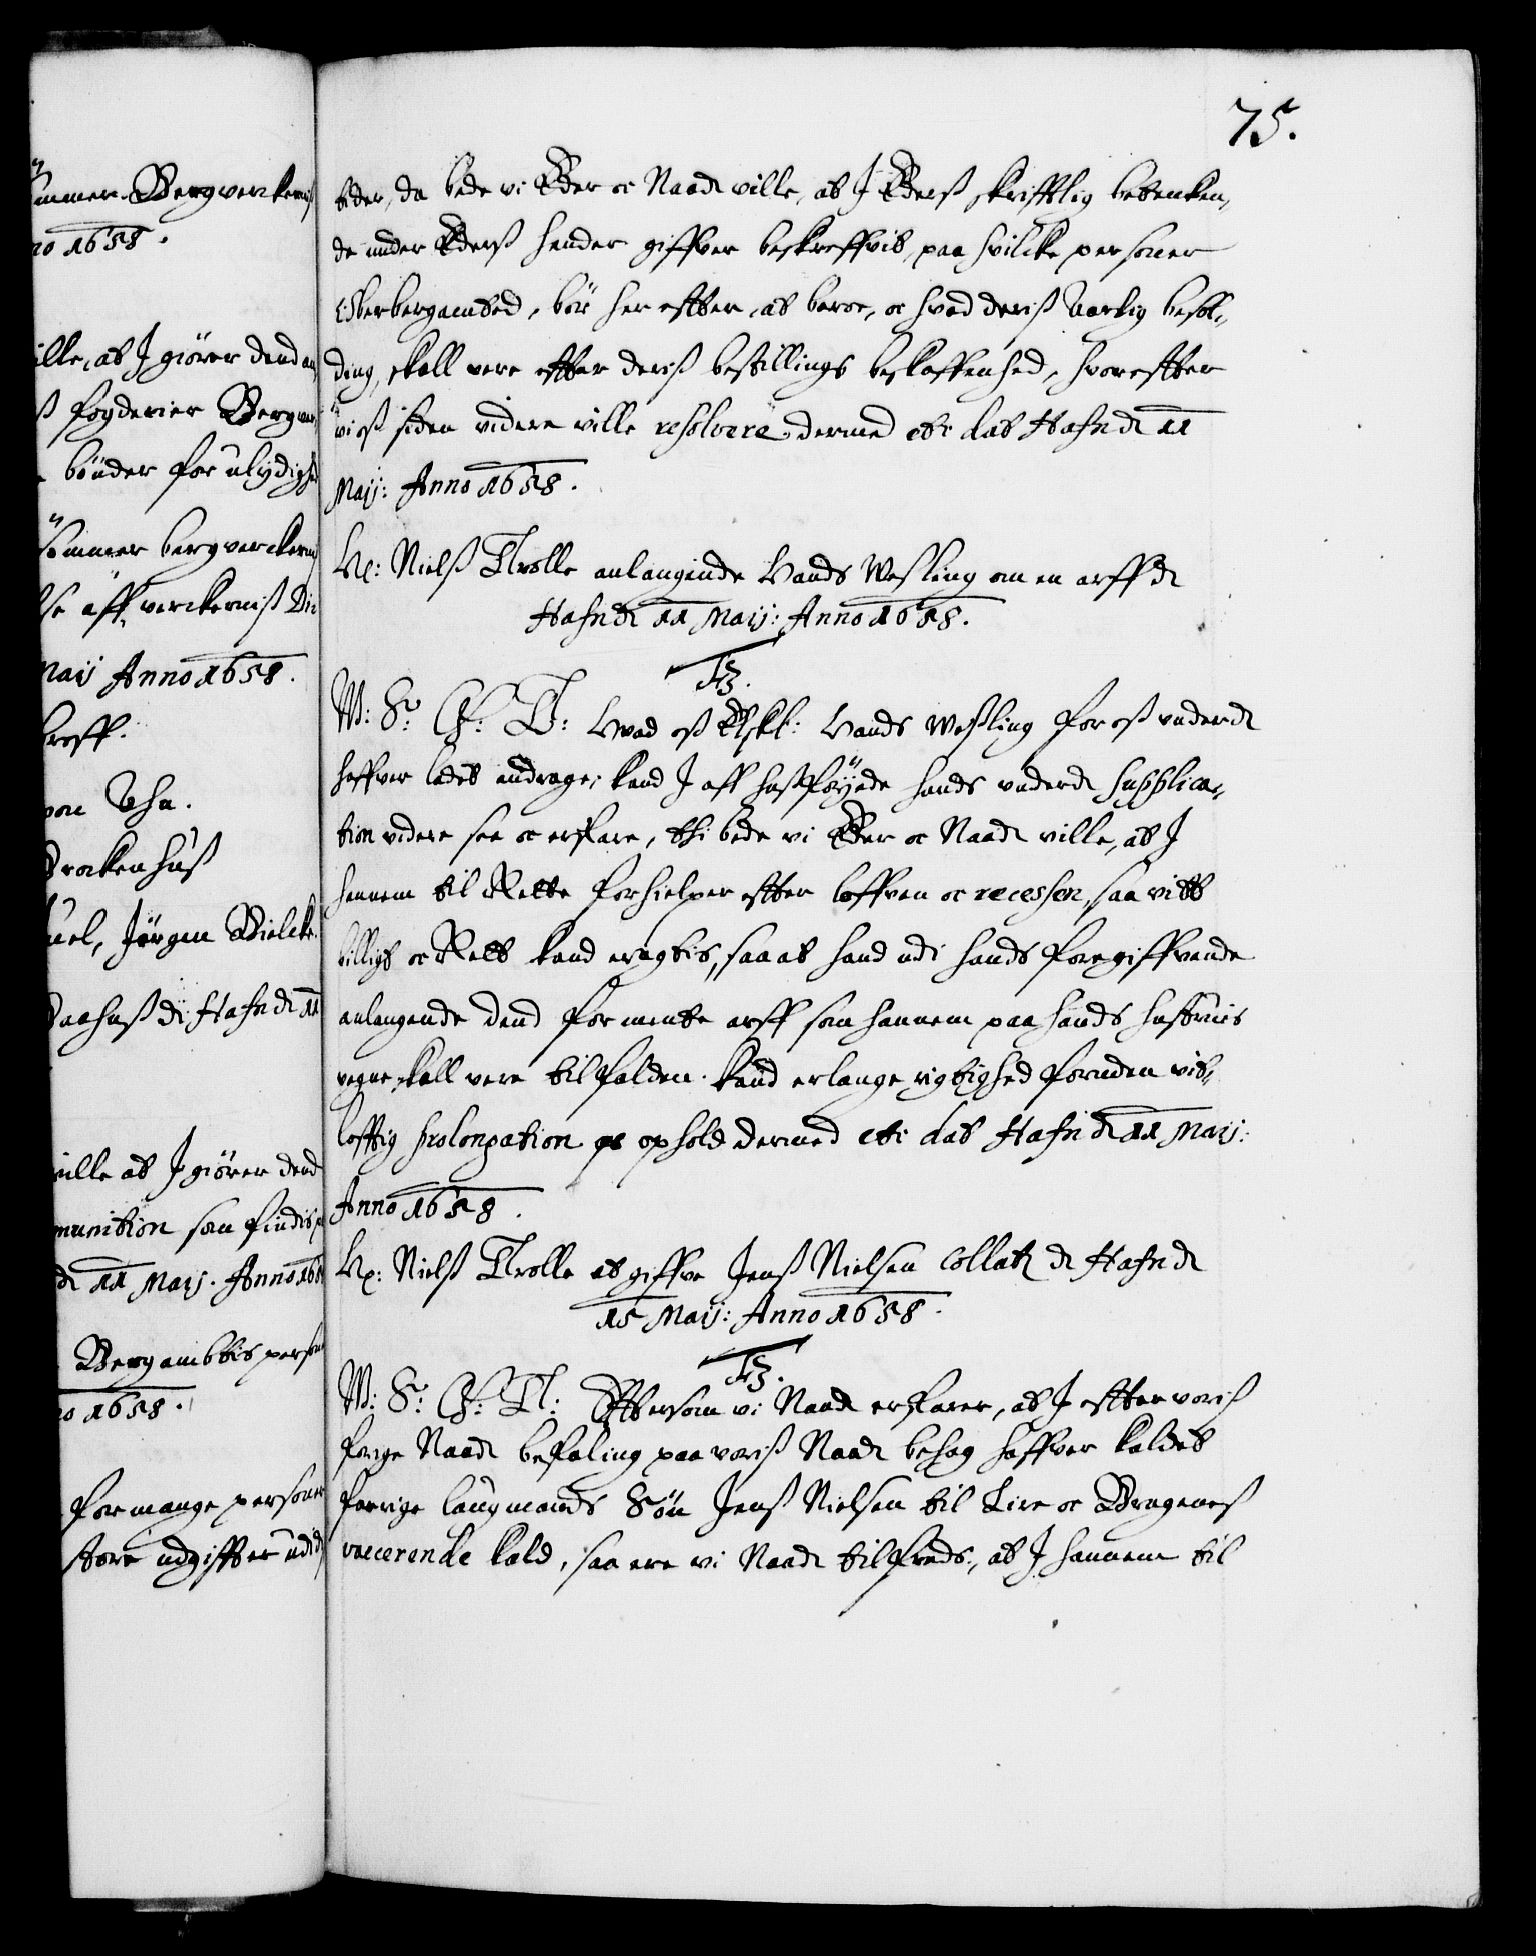 75.
mmer Bergverckerniß
no 1658.
ille, at I giörer dend an
ß fogderier Bergver
bönder for ulydighed
sömmer bergverckerniß
se aff verckerniß Di
Maij Anno 1658.
broff.
von Uhn.
Brockenhuß
uel, Jörgen Bielcke.
Hafn d: 11
ville at I giörer dend
munition som findis
d: 11 Maij. Anno 1658
Bergambtis person
no 1658.
for mange personer
store udgiffter udi
eder, da bede vi Eder oc Naad: ville, at I Ederß skrifftlig betencken,
de under Ederß hender giffver beskreffvit, paa hvilcke personer
Oberbergambted, bör her effter, at beroe, oc hvad deriß Aarlig besol-
ding, skall vere effter deriß bestillings beskaffenhed, hvoreffter
vi oß siden videre ville resolvere dermed etc: dat Hafn d: 11
Maij: Anno 1658.
Nielß Trolle anlangende Hands Weßling om en arff d:
Hafn d: 11 Maij: Anno 1658.
F3.
W: S: G: T: Hvad oß Elskl: Hands Weßling for oß underd:
haffver ladet andrage, kand I aff hoßföyede hands underd: supplica-
tion videre see oc erfare, thi bede vi Eder oc Naad: ville, at I
hannem til Rette forhielper effter loffven oc recessen, saa vitt
billigt oc Rett kand eragtis, saa at hand udi hands foregiffvende
anlangende dend formente arff som hannem paa hands hustruis
vegne skall vere tilfalden. kand erlange rigtighed foruden vit-
lofftig prolongation oc ophold dermed etc: dat Hafn d: 11 Maij:
Anno 1658.
Nielß Trolle at giffve Jenß Nielsen Collatz d: Hafn d:
15 Maij: Anno 1658.
F3.
W: S: G: T: Effttersom vi Naad: erfarer, at I effter voriß
forige Naad: befaling paa voriß Naad: behag haffver kaldet
forrige laugmands Sön Jenß Nielsen til Lier oc Bragenes
vacerende kald, saa ere vi Naad: tilfreds, at I hannem til